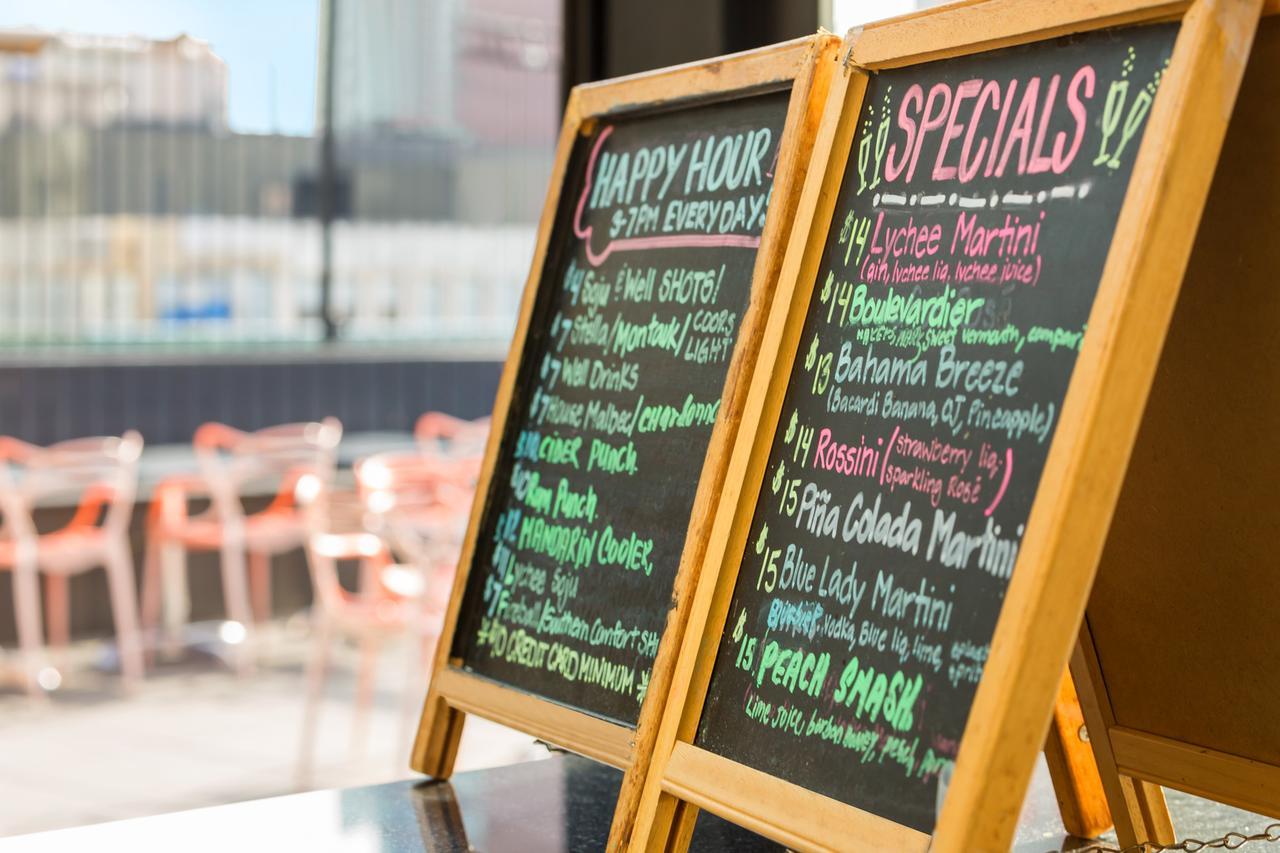 HAPPY HOUR
3-7PM EVERYDAY!
$4 Soju & Well SHOTS!
$7 Stella/Montauk/COORS LIGHT
$7 Well Drinks
$7 House Malbec/chardonna
CIDER Punch
Rum Punch
MANDARIN COOLER
Lychee Soju
$7 Fireball/Southern Comfort SH
*$10 CREDIT CARD MINIMUM*
SPECIALS
$14 Lychee Martini
(gin, lychee liq, lychee juice)
$14 Boulevardier
MAKERS MARK, sweet vermouth, campari
$13 Bahama Breeze
(Bacardi Banana, OJ, Pineapple)
$14 Rossini (strawberry liq,
sparkling Rosé)
$15 Piña Colada Martini
$15 Blue Lady Martini
vodka, Blue liq, lime,
$15 PEACH SMASH
(Lime juice, peach,